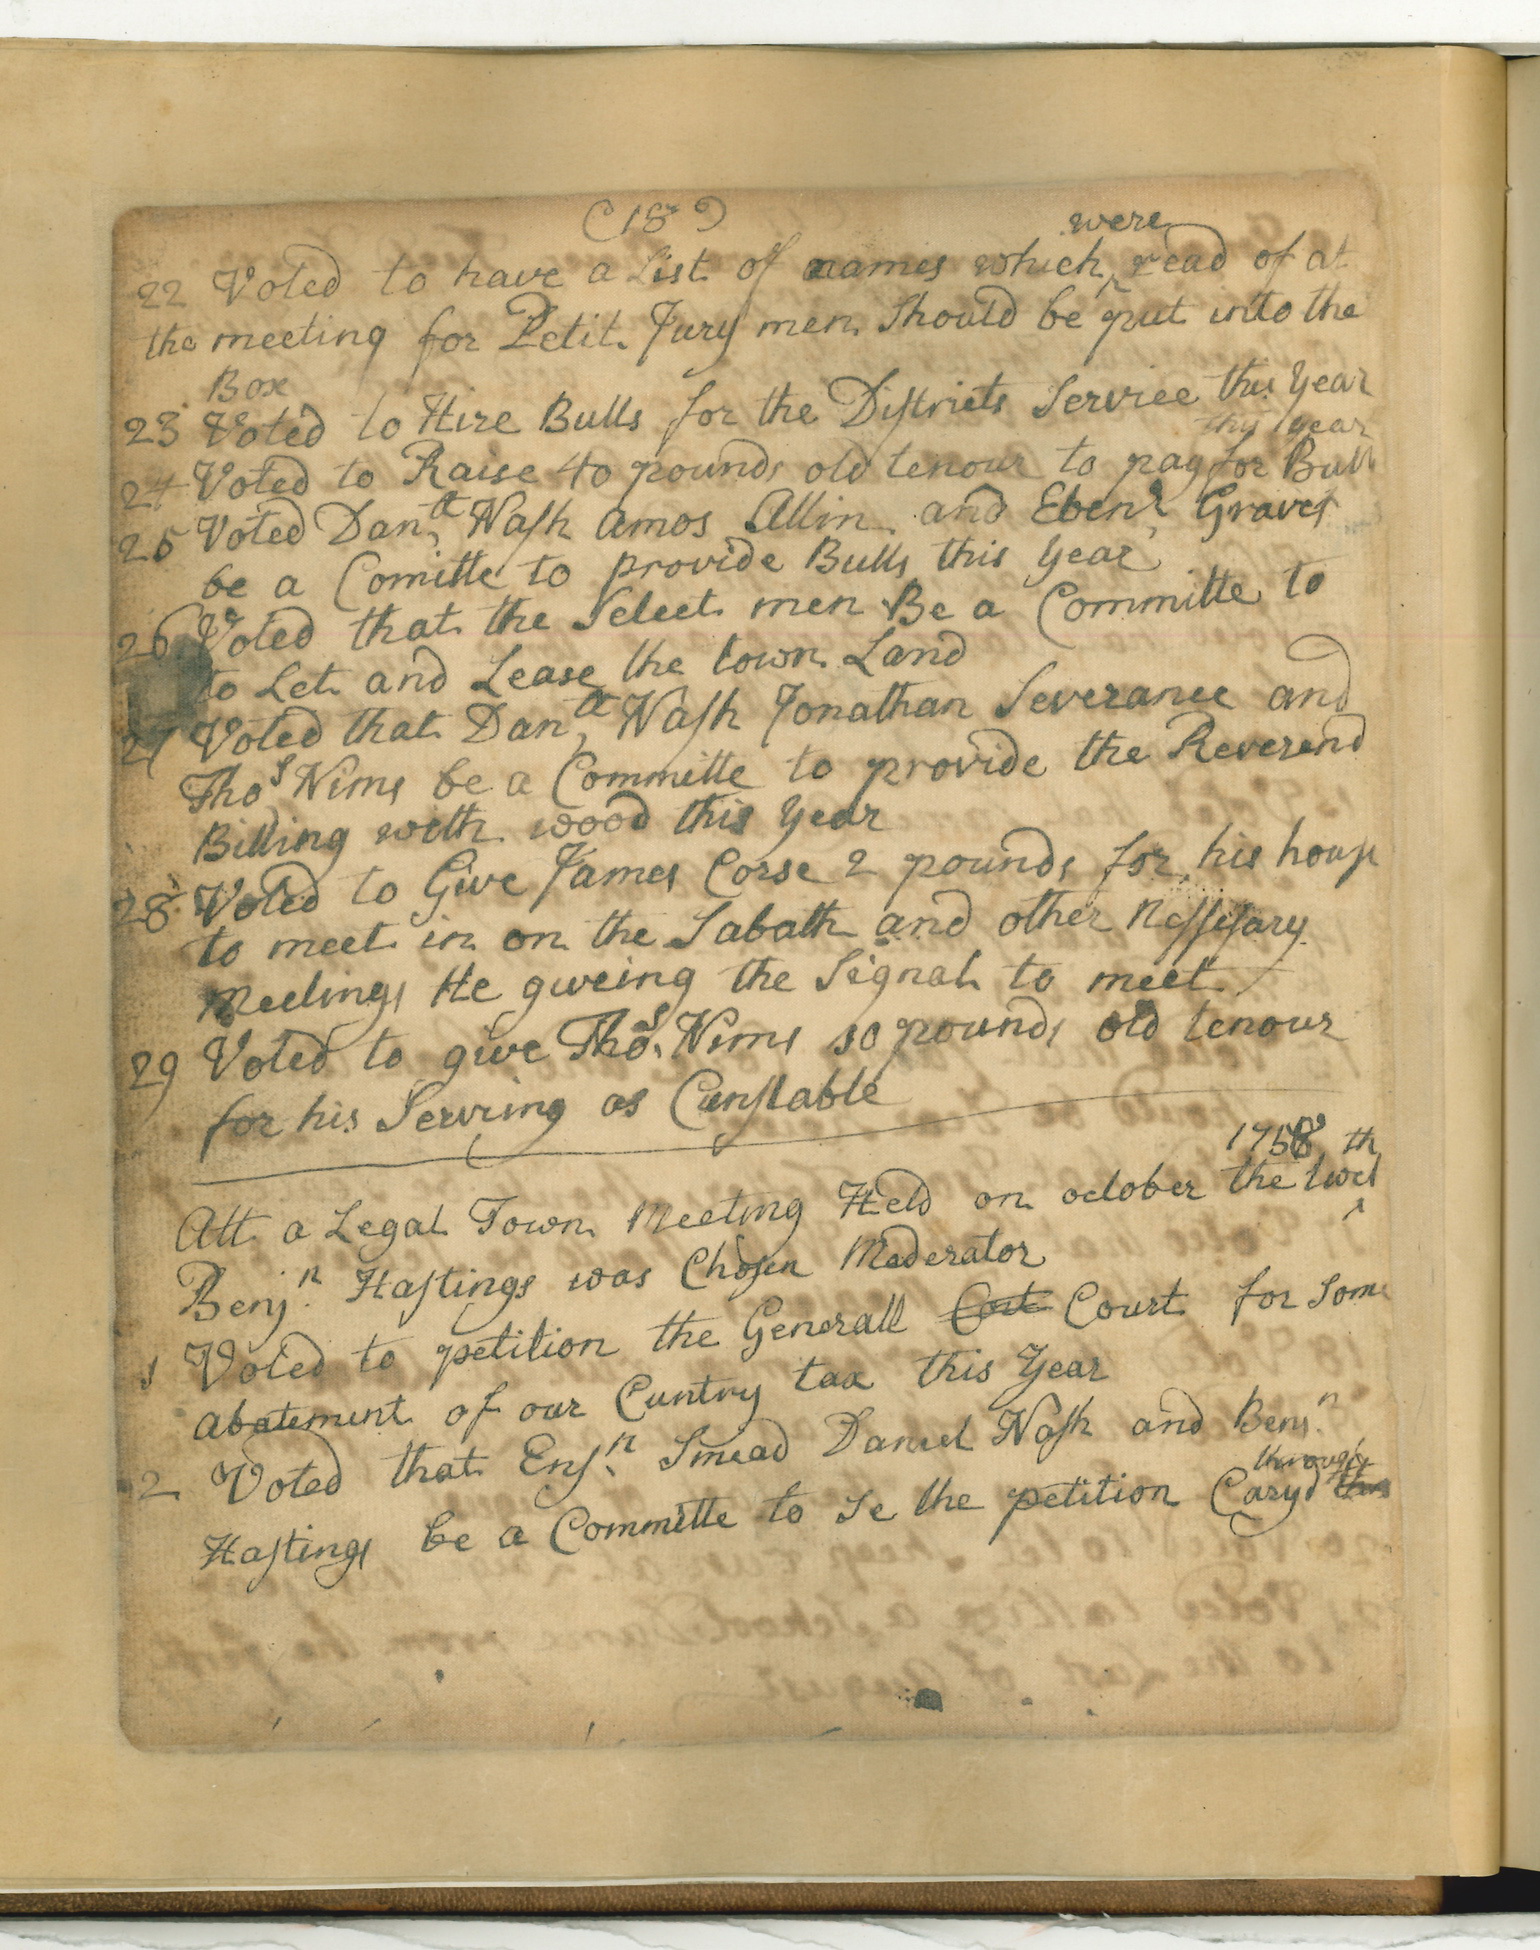 (18)
were
22 Voted to have a List of names which read of at
the meeting for Petit Jury men Should be put into the
Box
23 Voted to Hire Bulls for the Districts Service this Year
this Year
24 Voted to Raise 40 pounds old tenour to pay for Bull
25 Voted Danll Nash Amos Allin and Ebenr Graves
be a Comitte to provide Bulls this Year
26 Voted that the Select men Be a Committe to
to Let and Lease the town Land
27 Voted that Danll Nash Jonathan Severance and
Thos Nims be a Committe to provide the Reverend
Billing with wood this Year
28 Voted to Give James Corse 2 pounds for his house
to meet in on the Sabath and other Nessesary
Meetings He giveing the Signal to meet
29 Voted to give Thos Nims 10 pounds old tenour
for his Serving as Cunstable
1758 th
Att a Legal Town Meeting Held on october the twel
Benjn Hastings was Chosen Moderator
1 Voted to petition the Generall Cort Court for Some
abatement of our Cuntry tax this Year
2 Voted that Ensn Smead Daniel Nash and Benjn
through
Hastings be a Committe to Se the petition Caryd